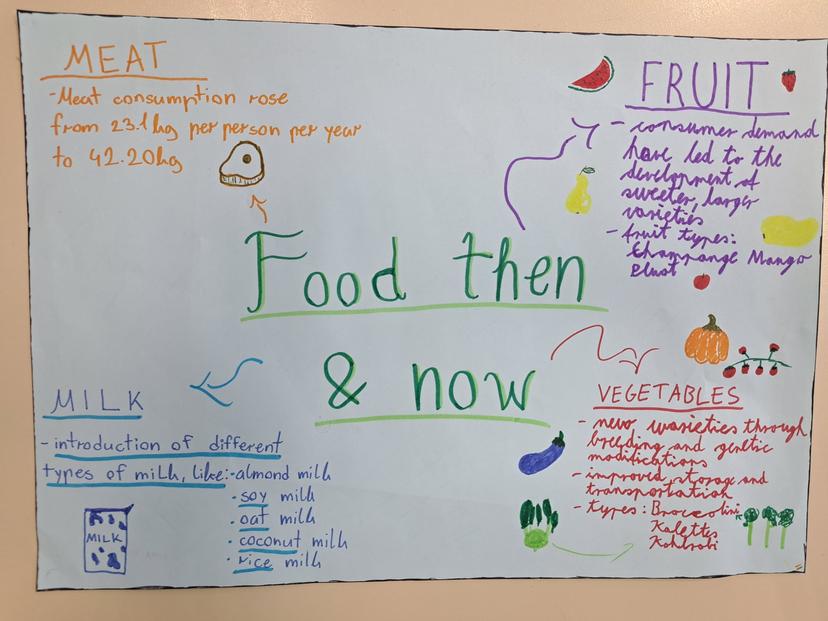 MEAT
-Meat consumption rose
from 23.1kg per person per year
to 42.20kg
FRUIT
- consumer demand
have led to the
development of
sweeter, larger
varieties
- fruit types:
Champange Mango
Plust
Food then
& now
MILK
- introduction of different
types of milk, like:-almond milk
· soy milk
· oat milk
· coconut milk
· rice milk
MILK
VEGETABLES
- new varieties through
breeding and genetic
modifications
- improved storage and
transportation
- types: Broccolini
Kalettes
Kohlrabi